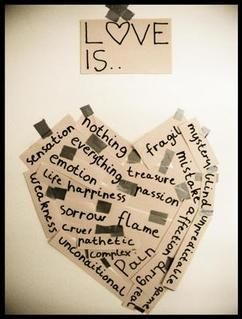 LOVE
IS..
nothing
sensation
everything
fragil
mystery
emotion
treasure
mistake
blind
life happiness
passion
weakness
affection
unpredictable
sorrow flame
cruel
pathetic
complex
pain
drug
game
unconditional
real